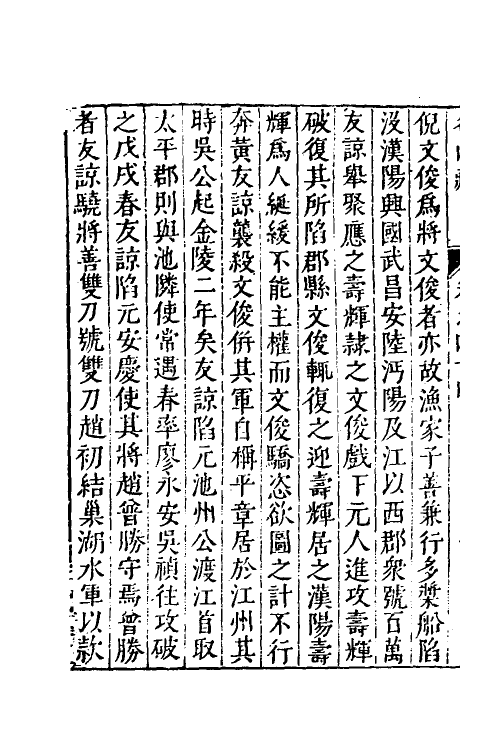 倪文俊爲將文俊者亦故漁家子善兼行多槳船陷
沒漢陽興國武昌安陸沔陽及江以西郡衆號百萬
友諒舉聚應之壽輝隸之文俊戲下元人進攻壽輝
破復其所陷郡縣文俊輒復之迎壽輝居之漢陽壽
輝爲人綖緩不能主權而文俊驕恣欲圖之計不行
奔黃友諒襲殺文俊併其軍自稱平章居於江州其
時吳公起金陵二年矣友諒陷元池州公渡江首取
太平郡則與池隣使常遇春率廖永安吳禎往攻破
之戊戌春友諒陷元安慶使其將趙曾勝守焉曾勝
者友諒驍將善雙刀號雙刀趙初結巢湖水軍以款